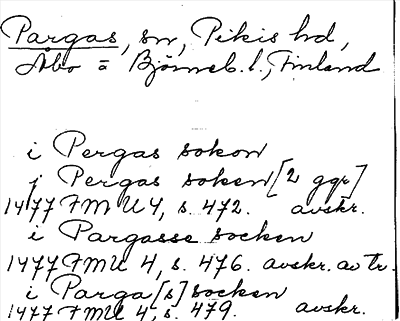 Pargas, sn, Pikis hd,
Åbo o Björneb. l., Finland
i Pergas sokon
i Pergas soken [2 ggr]
1477 FMU 4, s. 472. avskr.
i Pargasse socken
1477 FMU 4, s. 476. avskr. av tr.
i Parga[s] socken
1477 FMU 4, s. 479. avskr.